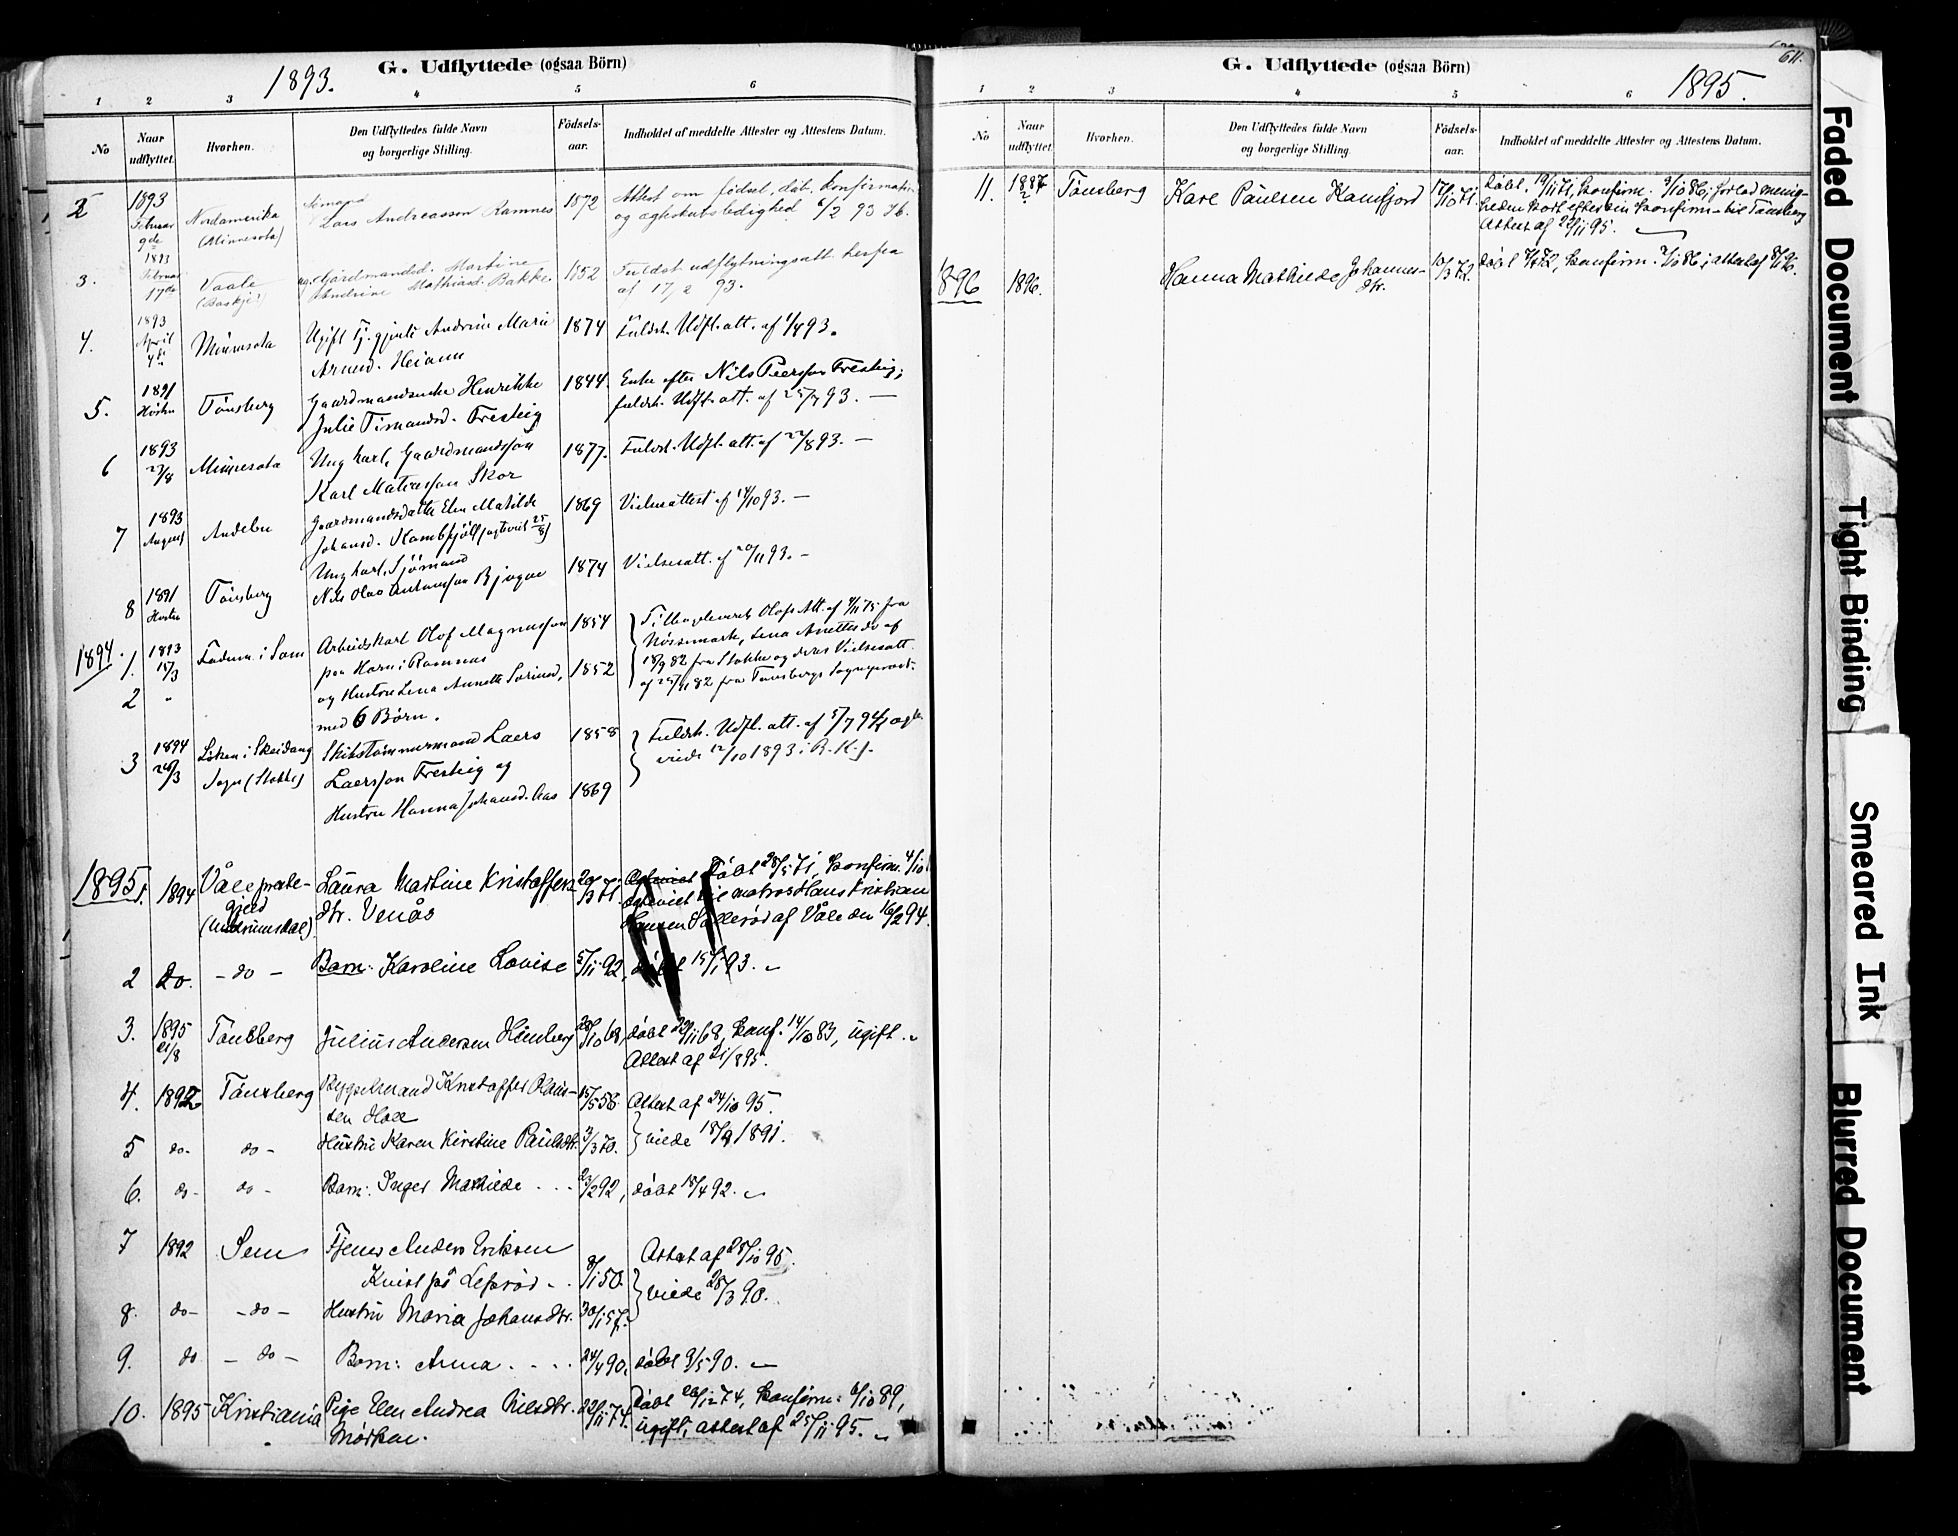 G. Udflyttede (ogsaa Börn)
1893.
1 2 3 4 5 6
No
Naar udflyttet.
Hvorhen.
Den Udflyttedes fulde Navn og borgerlige Stilling.
Födsels-aar.
Indholdet af meddelte Attester og Attestens Datum.
2 1893 Februar 9de Nordamerika (Minnesota) Sömand Lars Andreassen Ramnes 1872 Attest om fødsel, dåb, konfirmation
og ægteskabsledighed 6/2 93
3. 1893 Februar 17de Vaale Gårdmandsd. Martine 1852 Fuldst. udflytningsatt. herfra
Andrine Mathiasd. Bakke af 17/2 93.
4. 1893 April 4de Minnesota Ugift Tj. gjente Andrine Marie 1874 Fuldst. Udfl. att. af 4/4 93.
5. 1891 Høsten Tönsberg Gaardmandsenke Henrikke 1844. Enke efter Nils Peersson Fresteig;
Julie Timansd. Fresteig fuldst. Udfl. att. af 25/7 93. —
6 1893 27/8 Minnesota Ung karl, Gaardmandssøn 1877. Fuldst. Udfl. att. af 22/8 93. —
Karl Matiasson Skor
7 1893 August Andebu Gaardmandsdatter Elen Matilde 1869 Vielsesattest af 14/10 93. —
8 1891 Høsten Tönsberg Ung karl, Sjömand 1874 Vielsesatt. af 20/11 93. —
1894. 1. 1893 15/3 Arbeidskarl Olof Magnusson 1854
paa Horn i Ramnes
2 " og Hustru Lena Annette Sörensd., 1852
med 6 Børn.
Tilbageleveret Olofs Att. af 4/11 75 fra
Nössemark, Lena Anettes do af
18/9 82 fra Stokke og deres Vielsesatt.
3 1894 24/3 Löken i Skeidang Sogn (Stokke) Skibstömmermand Laers 1858 Fuldst. Udfl. att. af 5/7 94
Laersson Fresteig og viede 12/10 1893 i R. K.
Hustru Hanna Johansd. Aas 1869
1895. 1. 1894 Våle preste-gjeld (Undrumsdal). Laura Martine Kristoffers- 20/3 71. Døbt 28/5 71, konfirm. 4/10
dtr. Venås til matros Hans Kristian
Hansen Sollerød af Våle den 16/2 94.
2 do. - do - Barn: Karoline Lovise 5/11 92, døbt 15/1 93.
3. 1895 21/8 Tönsberg Julius Andersen Himberg 28/10 68, døbt 29/11 68, konf. 14/10 83, ugift.
Attest af 21/8 95.
4. 1892 Tönsberg Bygselmand Kristoffer Olaus- 15/5 56. Attest af 24/10 95.
sen
5 do. do - Hustru Karen Kirstine Paulsdtr. 3/3 70. viede 18/9 1891.
6. do - do - Barn: Inger Mathilde . . . 23/2 92, døbt 18/4 92.
7 1892 Sem Tjener Anders Eriksen Attest af 25/10 95.
Kvist på Lefsrød . . 8/1 50. viede 28/3 90.
8. do - - do - Hustru Maria Johansdtr. 30/1 57.
9. do - do - Barn: Anna . . . . 24/4 90. døbt 9/5 90. —
10. 1895 Kristiania Pige Elen Andrea Nilsdtr. 22/11 74. Døbt 26/12 74, konfirm: 6/10 89,
Mørken. ugift, attest af 25/11 95.
G. Udflyttede (ogsaa Börn)
611.
1895.
1 2 3 4 5 6
No
Naar udflyttet.
Hvorhen.
Den Udflyttedes fulde Navn og borgerlige Stilling.
Födsels-aar.
Indholdet af meddelte Attester og Attestens Datum.
11. 1887 Tönsberg Kare Paulsen Kamfjord 17/10 71. Døbt 19/11 71, konfirm. 3/10 86, forlod menig-
heden kort efter sin konfirm. til Tönsberg
Attest af 22/11 95.
1896 1896. Hanna Mathilde Johannes- 10/3 72. døbt 7/4 72, konfirm. 3/10 86; attest af 8/1 96.
dtr.
Faded Document
Tight Binding
Smeared Ink
Blurred Document